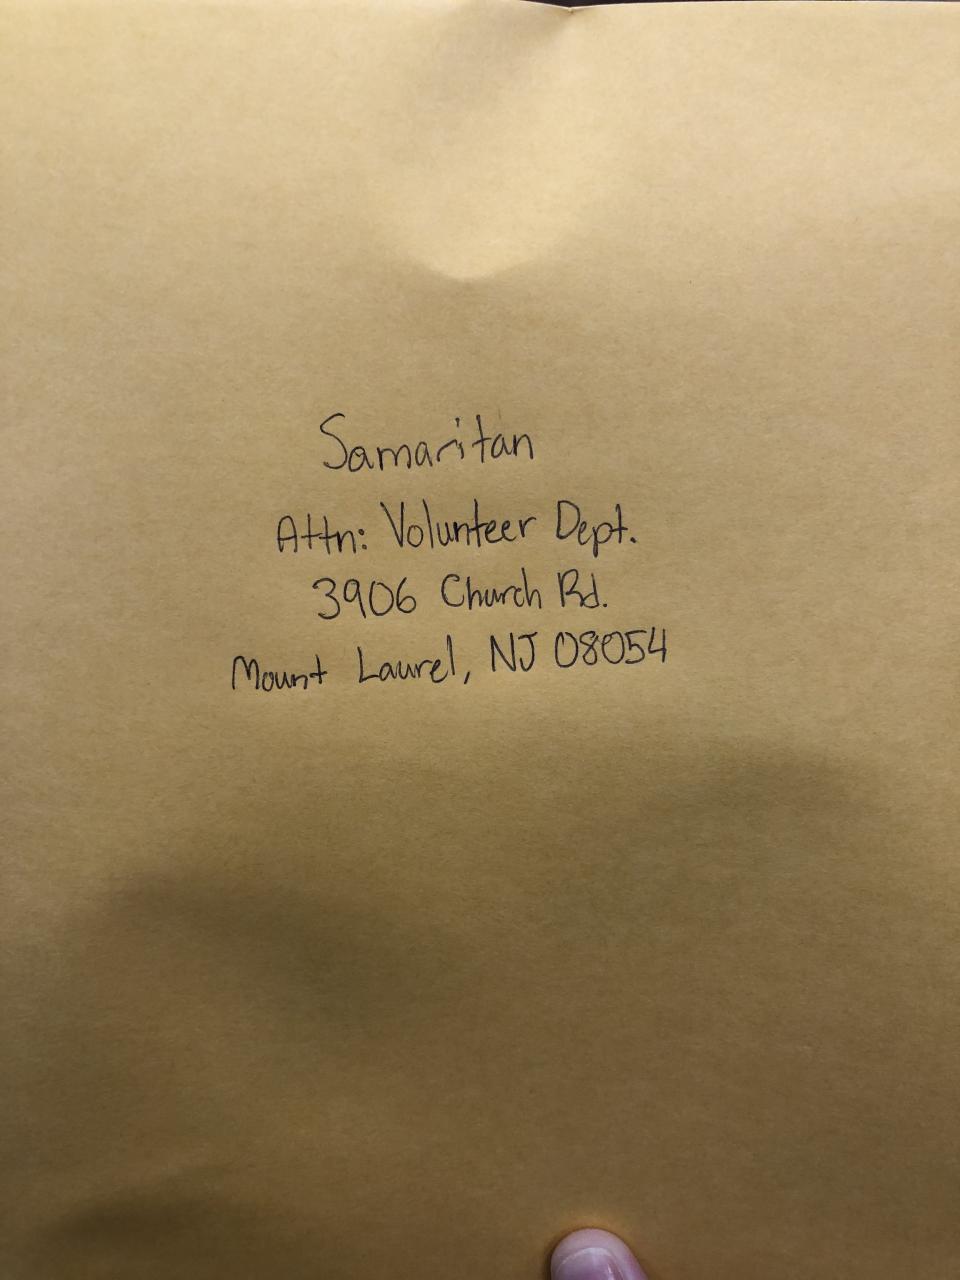 Samaritan
Attn: Volunteer Dept.
3906 Church Rd.
Mount Laurel, NJ 08054